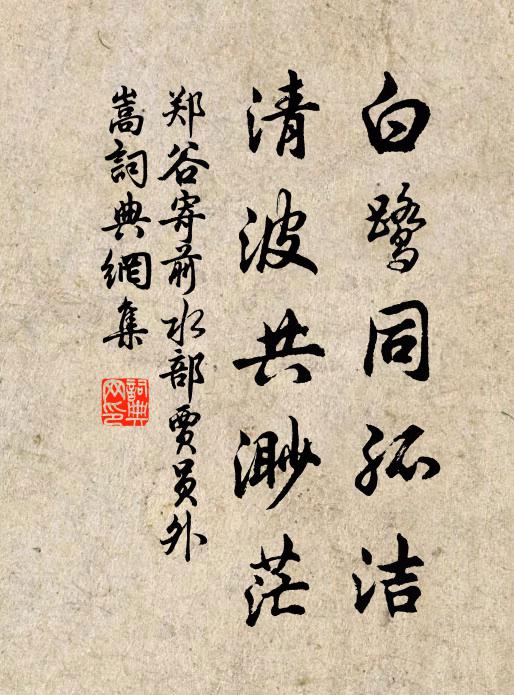 白鹭同孤洁
清波共渺茫
郑谷寄前水部贾员外
嵩詞典網集
詞典
网印